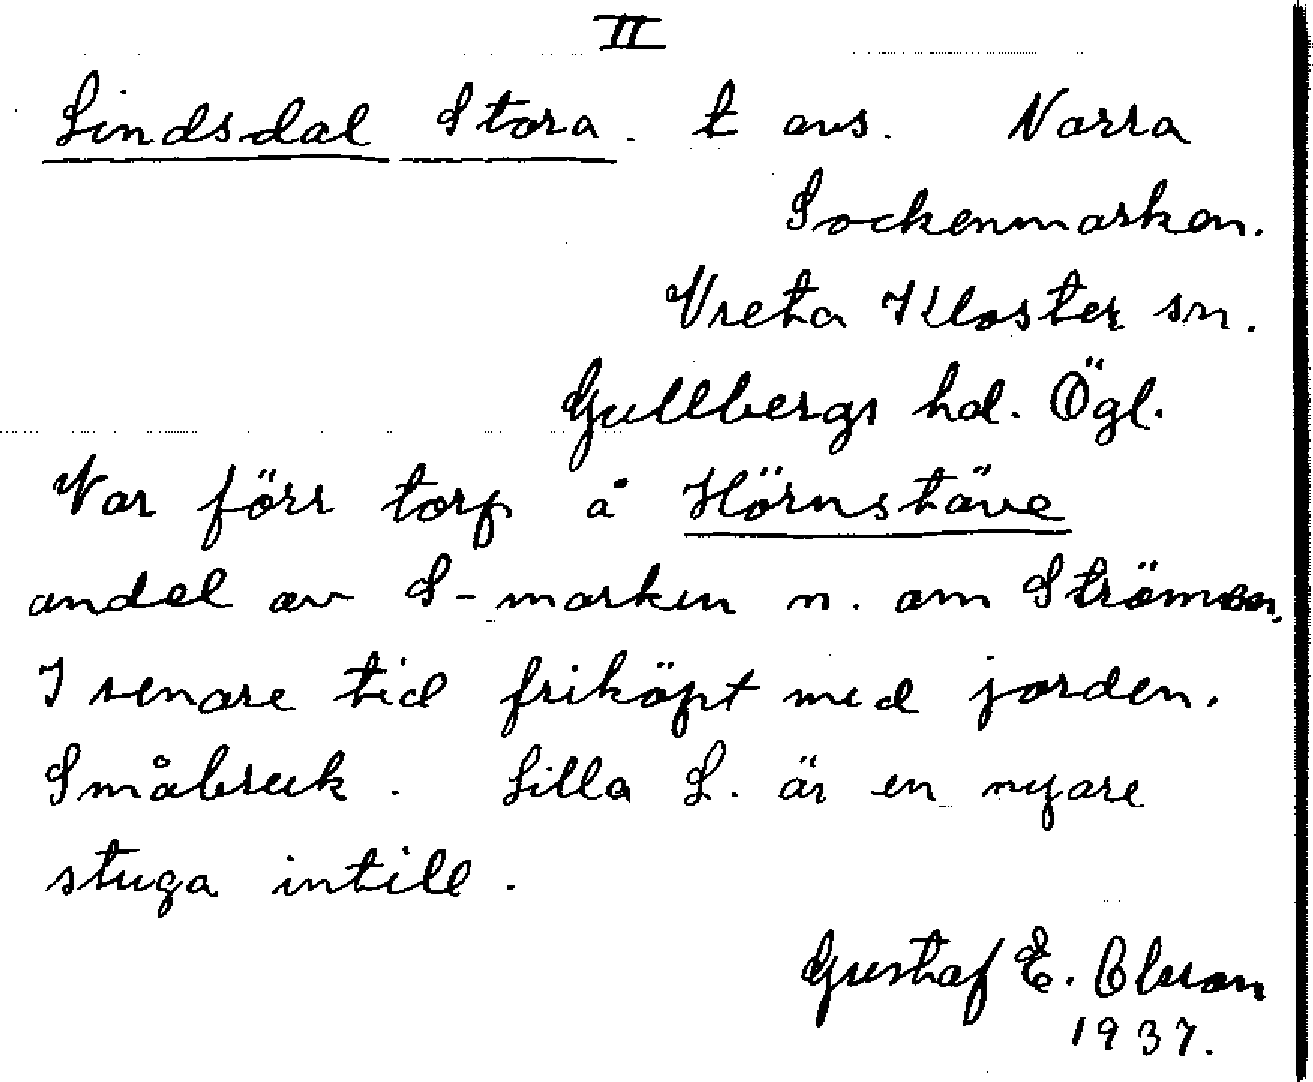 II
Lindsdal Stora. t avs. Norra
Sockenmarken.
Vreta Kloster sn.
Gullbergs hd. Ögl.
Var förr torp å Hörnstäve
andel av S-marken n. om Strömmen.
I senare tid friköpt med jorden.
Småbruk. Lilla L. är en nyare
stuga intill.
Gustaf E. Olsson
1937.